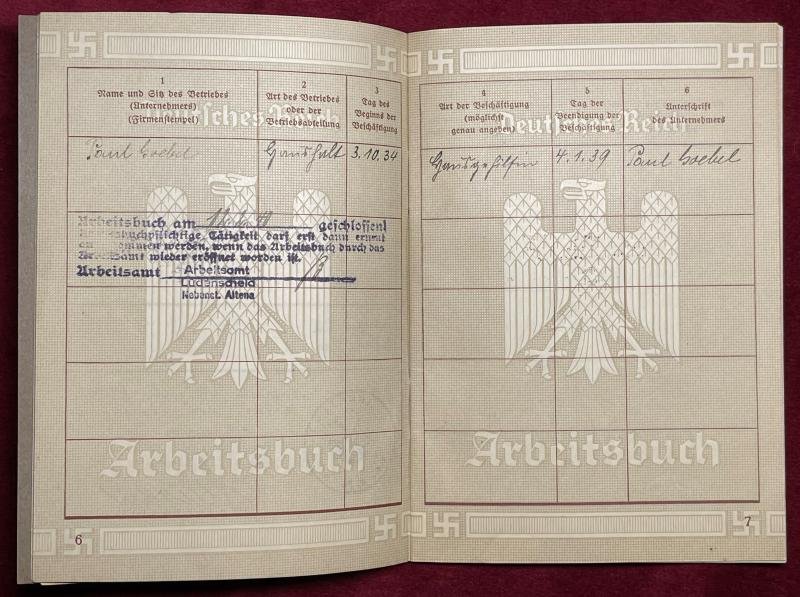 1
Name und Sitz des Betriebes
(Unternehmers)
(Firmenstempel)
2
Art des Betriebes
oder der
Betriebsabteilung
3
Tag des
Beginns der
Beschäftigung
Deutsches Reich
Paul Goebel
Haushalt
3.10.34
Arbeitsbuch am geschlossen!
Tätigkeit darf erst dann erneut
werden, wenn das Arbeitsbuch durch das
Arbeitsamt wieder eröffnet worden ist.
Arbeitsamt
Arbeitsamt
Lüdenscheid
Nebenst. Altena
Arbeitsbuch
6
4
Art der Beschäftigung
(möglichst
genau angeben)
5
Tag der
Beendigung der
Beschäftigung
6
Unterschrift
des Unternehmers
Deutsches Reich
Hausgehilfin
4.1.39
Paul Goebel
Arbeitsbuch
7